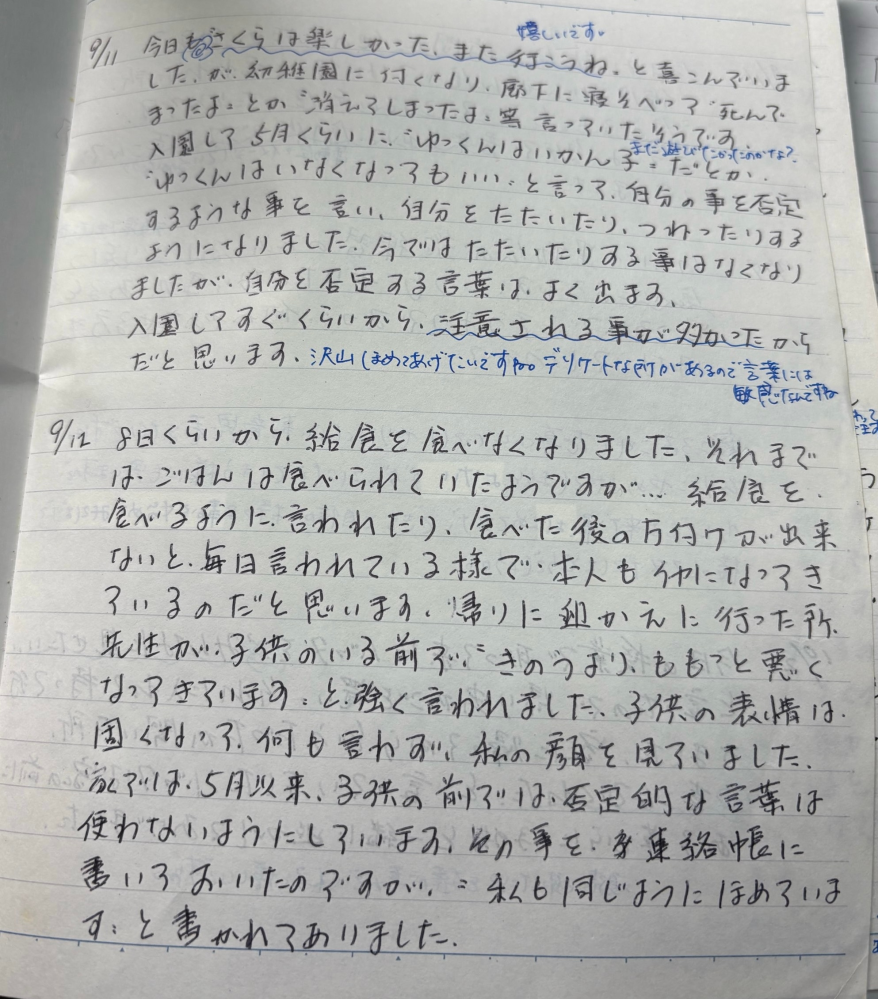 嬉しいです。
9/11 今日もさくらは楽しかった、また行こうね、と喜こんでいま
したが、幼稚園に行くなり、廊下に寝そべって〝死んで
まったよ〟とか〝消えてしまったよ〟等言っていたそうです
まだ遊びたかったのかな?
入園して5月くらいに、〝ゆっくんはいかん子〟だとか、
〝ゆっくんはいなくなってもいい〟と言って、自分の事を否定
するような事を言い、自分をたたいたり、つねったりする
ようになりました、今ではたたいたりする事はなくなり
ましたが、自分を否定する言葉は、よく出ます、
入園してすぐくらいから、注意される事が多かったから
だと思います、沢山ほめてあげたいですね。デリケートな所があるので言葉には
敏感なんですね
9/12 8日くらいから、給食を食べなくなりました、それまで
は、ごはんは食べられていたようですが… 給食を、
食べるように、言われたり、食べた後の方付けが出来
ないと、毎日言われている様で、本人もイヤになってき
ているのだと思います、帰りに迎かえに行った所、
先生が、子供のいる前で、〝きのうより、ももっと悪く
なってきています〟と、強く言われました、子供の表情は、
固くなって、何も言わず、私の顔を見ていました、
家では、5月以来、子供の前では、否定的な言葉は
使わないようにしています、その事を、連絡帳に
書いておいたのですが、〝私も同じようにほめていま
す〟と書かれてありました、